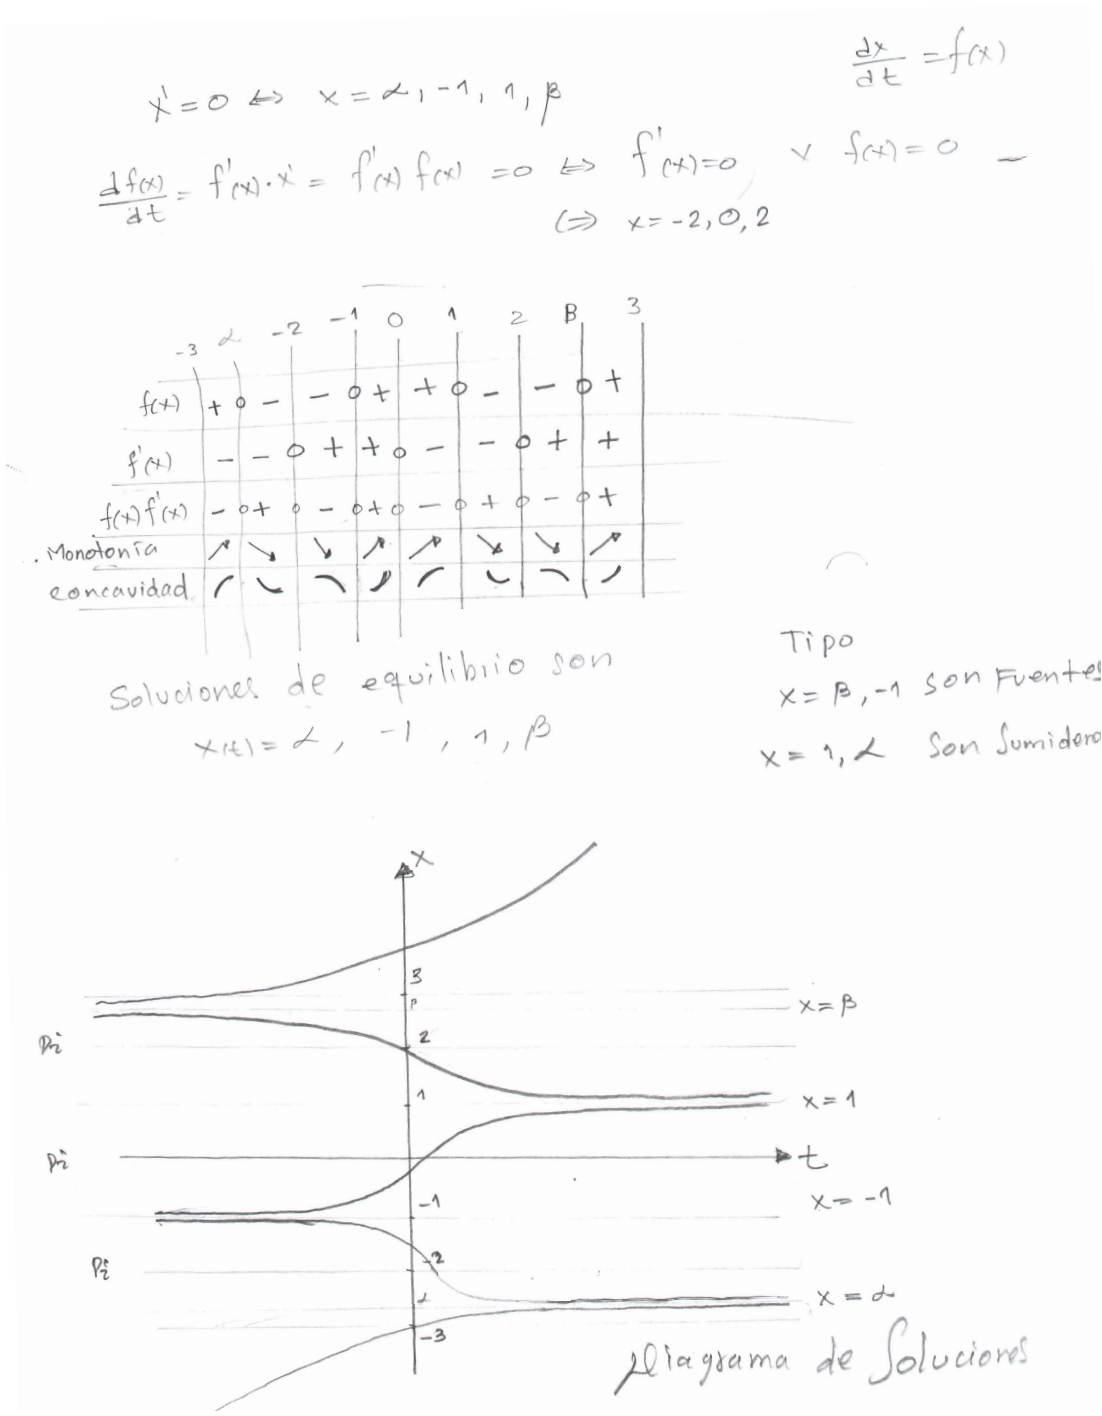 dx/dt = f(x)
x' = 0 ⇔ x = α, -1, 1, β
df(x)/dt = f'(x)·x' = f'(x) f(x) = 0 ⇔ f'(x) = 0 ∨ f(x) = 0
⇔ x = -2, 0, 2
-3 α -2 -1 0 1 2 β 3
f(x) + o - - o + + o - - o +
f'(x) - - o + + o - - o + +
f(x) f'(x) - o + o - o + o - o + o - o +
Monotonía ↗ ↘ ↘ ↗ ↗ ↘ ↘ ↗
concavidad
Soluciones de equilibrio son
x(t) = α, -1, 1, β
Tipo
x = β, -1 son Fuentes
x = 1, α son Sumidero
x
3
β
x = β
Pi
2
1
x = 1
Pi
t
-1
x = -1
Pi
-2
α
x = α
-3
Diagrama de Soluciones